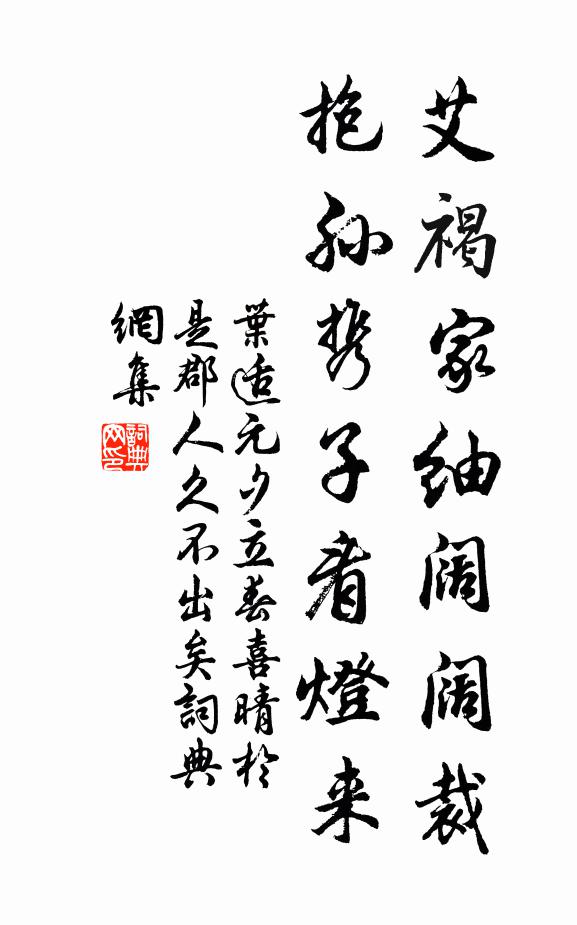 艾褐家紬阔阔裁
抱孙携子看燈来
葉适元夕立春喜晴於
是郡人久不出矣詞典
網集
詞典
网印